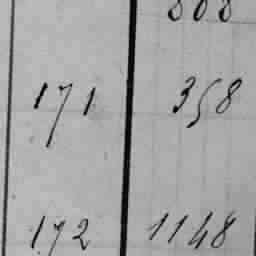 808
171 358
172 1148